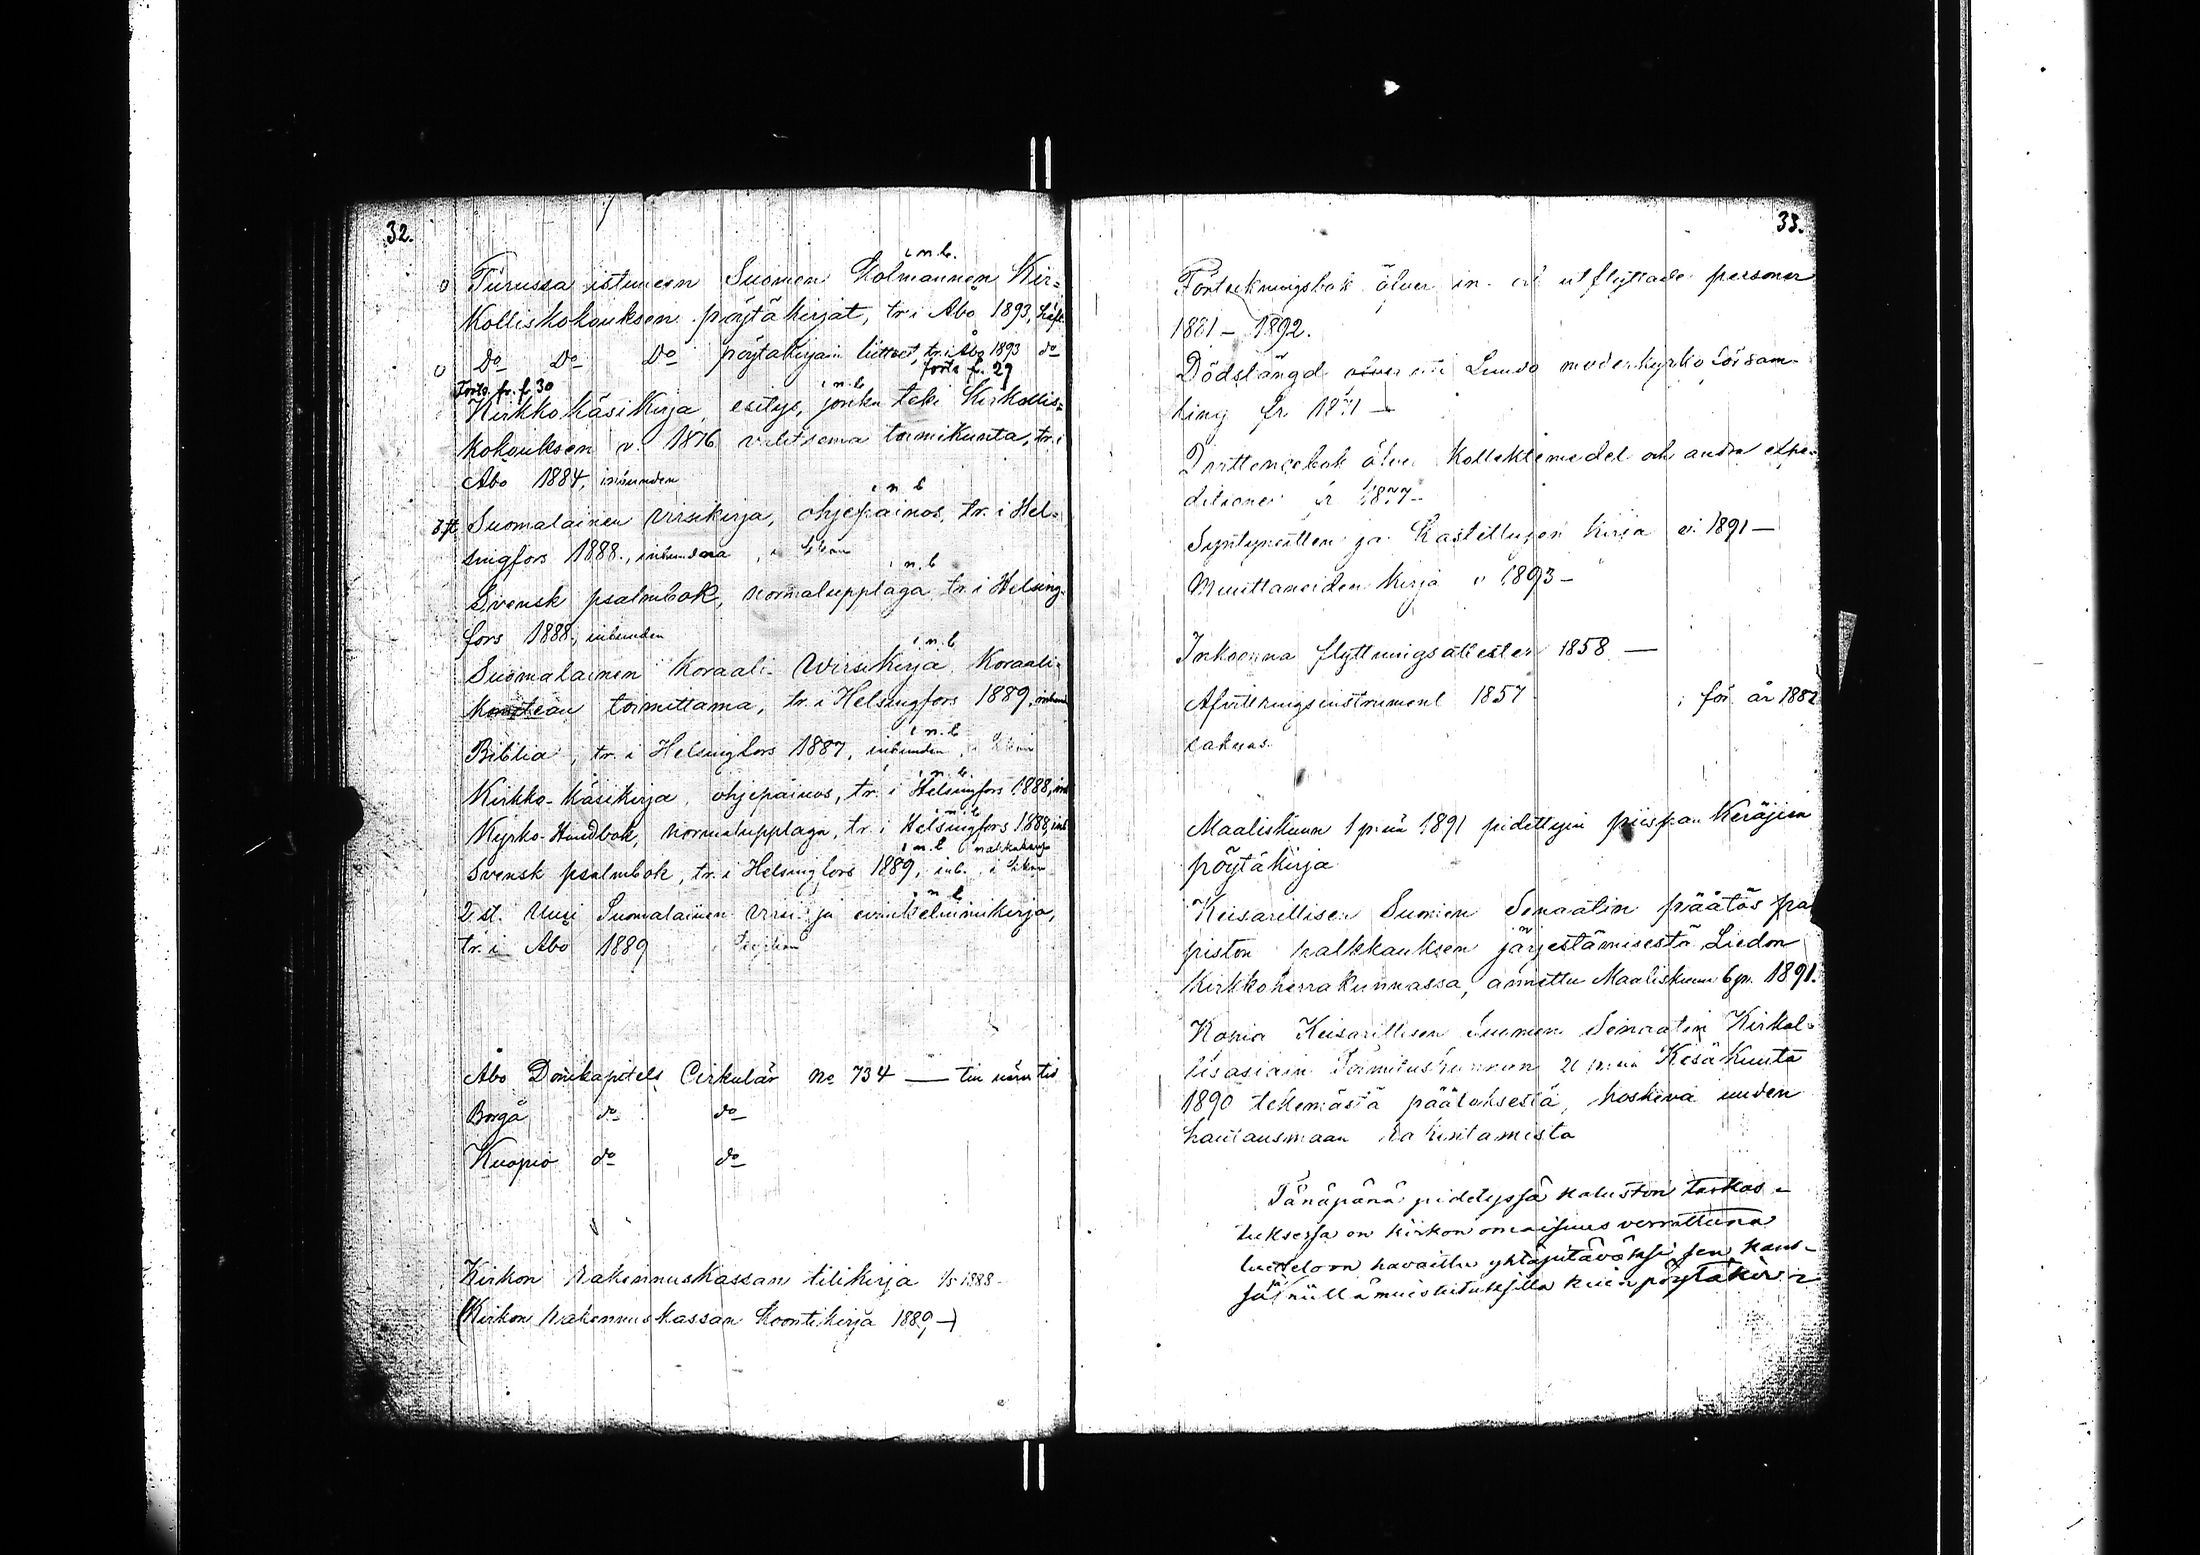 32.
i n. b.
o Turussa istuneen Suomen Kolmannen Kir=
kolliskokouksen pöytäkirjat, tr. i Åbo 1893, häft.
o Do Do Do pöytäkirjain liitteet, tr. i Åbo 1893 do
forts. fr. f. 30 forts f. 29
i n. b.
Kirkko käsikirja esitys, jonka teki Kirkollis=
kokouksen v. 1876 valitsema toimikunta, tr. i
Åbo 1884, inbunden
i n b
3 st Suomalainen Virsikirja, ohjepainos, tr. i Hel=
singfors 1888., inbundna, i
i n. b
Svensk psalmbok, normalupplaga tr. i Helsing=
fors 1888., inbunden
i n. b
Suomalainen Koraali-Wirsikirja Koraali-
toimittama, tr. i Helsingfors 1889,
i n. b
Biblia, tr. i Helsingfors 1887, inbunden
i n. b.
Kirkko-Käsikirja, ohjepainos, tr. i Helsingfors 1888, inb
i n. b
Kyrko-Handbok, normalupplaga, tr. i Helsingfors 1888, inb
i n. b
Svensk psalmbok, tr. i Helsingfors 1889, inb. i
i n b
2 st. Uusi Suomalainen Virsi- ja evankeliumikirja,
tr. i Åbo 1889
Åbo Domkapitels Cirkulär No 734 — till när tid
Borgå do do
Kuopio do do
Kirkon Rakennuskassan tilikirja 1/5 1888-
(Kirkon Rakennuskassan Kontikirja 1889 -)
33.
Förteckningsbok öfver in- och utflyttade personer
1881 - 1892.
Dödslängd öfver Lundo moderkyrkoförsam-
ling fr.
Qvittencebok öfver Kollektemedel och andra expe-
ditioner fr 1877-
Syntyneitten ja Kastettujen Kirja v. 1891 -
Muuttaneiden Kirja v 1893 -
Inkomna flyttningsattester 1858 —
Afvittringsinstrument 1857 ; för år 1882
saknas.
Maaliskuun 1 p:nä 1891 pidettyjen piispan Keräjien
pöytäkirja
Keisarillisen Suomen Senaatin päätös pa
piston palkkauksen järjestämisestä Liedon
Kirkkoherrakunnassa, annettu Maaliskuun 6 p. 1891.
Kopia Keisarillisen Suomen Senaatin Kirkol-
lisasiain Toimituskunnan 20 p:nä Kesäkuuta
1890 tekemästä päätöksestä, koskeva uuden
hautausmaan rakentamista
Tänäpänä pidetyssä kaluston tarkas-
tuksessa on kirkon omaisuus verrattuna
luetteloon havaittu yhtäpitäväksi sen kans-
sa, niillä muistutuksilla kuin pöytäkir-